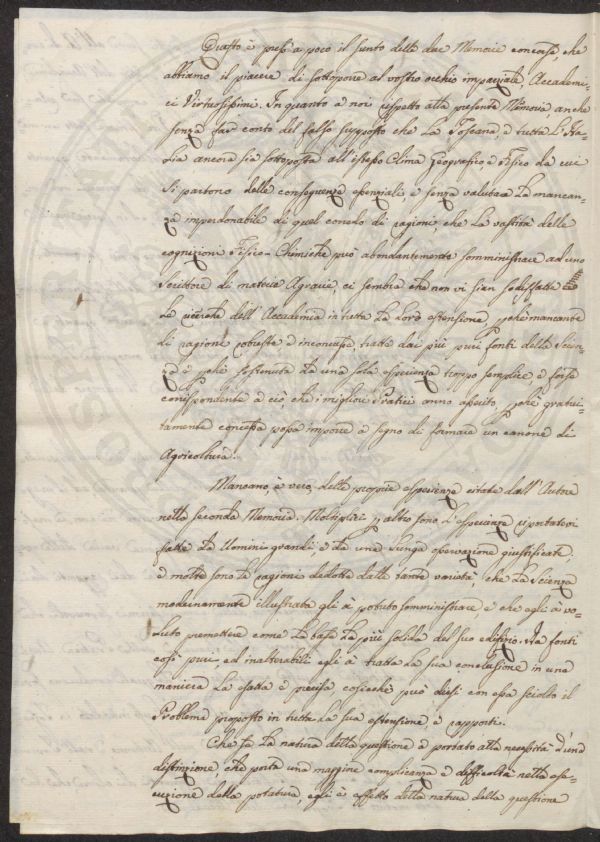 Questo è presso a poco il sunto delle due Memorie concorse, che
abbiamo il piacere di sottoporre al vostro occhio imparziale, Accademi-
ci Virtuosissimi. In quanto a noi rispetto alla presente Memoria, anche
senza far conto del falso supposto che la Toscana, e tutta l'Ita-
lia ancora sia sottoposta all'istesso Clima Geografico, e Fisico da cui
si partono delle conseguenze essenziali, e senza valutare la mancan-
za imperdonabile di quel corredo di ragioni, che la vastità delle
cognizioni Fisico-Chimiche può abondantemente somministrare ad uno
Scrittore di materie Agrarie, ci sembra che non vi sian sodisfatte
le ricerche dell'Accademia in tutta la loro estensione, perchè mancante
di ragioni robuste e inconcusse, tratte dai più puri fonti della Scien-
za e perchè sostenuta da una sola esperienza troppo semplice, e forse
corrispondente a ciò, che i migliori Pratici anno asserito, perchè gratui-
tamente concessa possa imporre a segno di formare un canone di
Agricoltura.
Mancano, è vero, delle proprie esperienze citate dall'Autore
nella seconda Memoria. Moltiplici per altro sono l'esperienze riportatevi
fatte da Uomini grandi, e da una lunga operazione giustificate;
e molte sono le ragioni dedotte dalle tante varietà, che la Scienza
modernamente illustrata gli à potuto somministrare, e che egli à vo-
luto premettere come la base la più solida del suo edifizio. Da fonti
così puri, ed inalterabili egli à tratta la sua conclusione in una
maniera la esatta e precisa cosicchè può dirsi con essa sciolto il
Problema proposto in tutta la sua estensione, e rapporti.
Che se la natura della questione à portato alla necessità d'una
distinzione, che porta una maggiore complicanza e difficoltà nella ese-
cuzione della potatura, egli è effetto della natura della questione